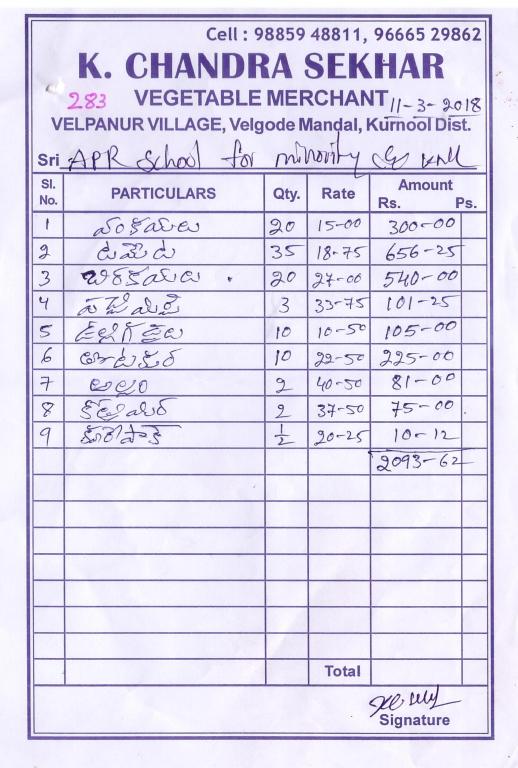 Cell : 98859 48811, 96665 29862
K. CHANDRA SEKHAR
283 VEGETABLE MERCHANT 11-3-2018
VELPANUR VILLAGE, Velgode Mandal, Kurnool Dist.
Sri APR School for minority
Sl. No. PARTICULARS Qty. Rate Amount Rs. Ps.
1 వంకాయలు 20 15-00 300-00
2 టమోట 35 18-75 656-25
3 బీరకాయలు 20 27-00 540-00
4 పచ్చిమిర్చి 3 33-75 101-25
5 ఉల్లిగడ్డలు 10 10-50 105-00
6 తోటకూర 10 22-50 225-00
7 అల్లం 2 40-50 81-00
8 కొత్తిమీర 2 37-50 75-00
9 కరేపాకు ½ 20-25 10-12
2093-62
Total
Signature